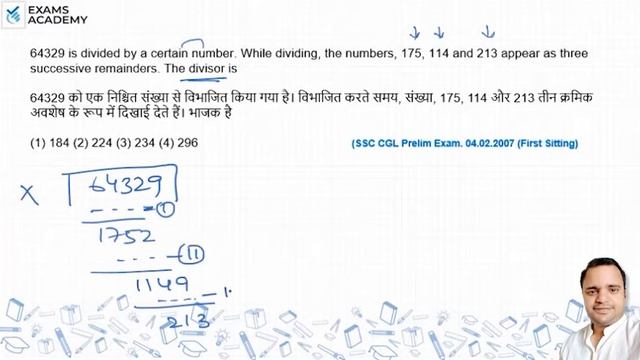 EXAMS
ACADEMY
64329 is divided by a certain number. While dividing, the numbers, 175, 114 and 213 appear as three
successive remainders. The divisor is
64329 को एक निश्चित संख्या से विभाजित किया गया है। विभाजित करते समय, संख्या, 175, 114 ओर 213 तीन क्रमिक
अवशेष के रूप में दिखाई देते हैं। भाजक है
(1) 184 (2) 224 (3) 234 (4) 296
(SSC CGL Prelim Exam. 04.02.2007 (First Sitting)
X 64329
---- I
1752
---- II
1149
----
213